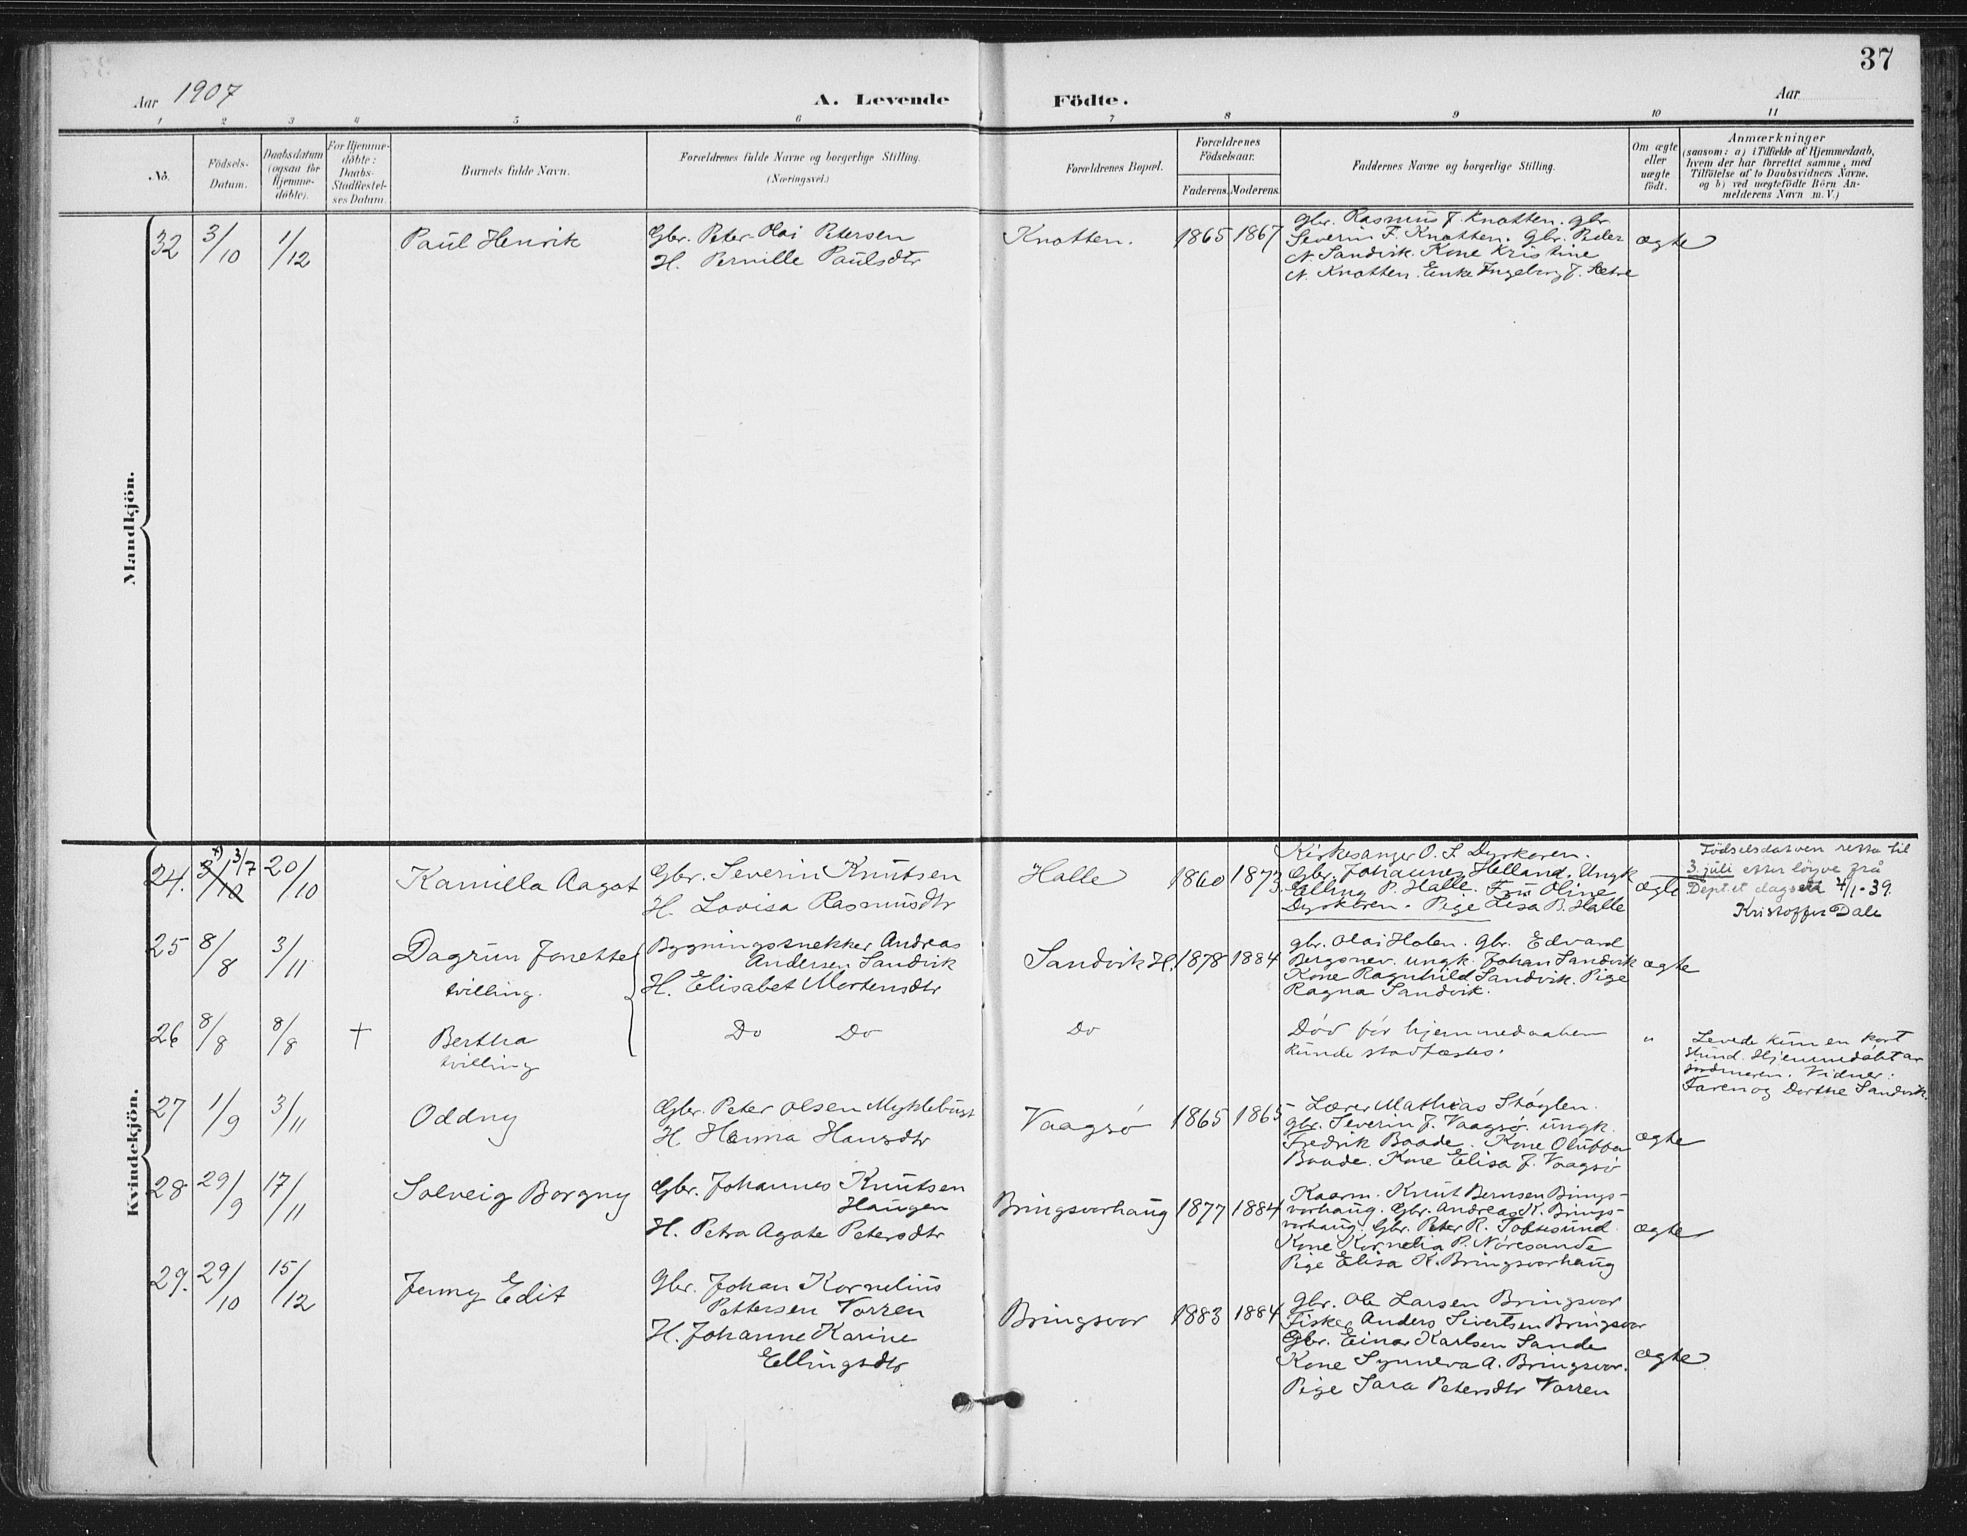 37
Aar 1907
A. Levende Födte.
Aar
1 2 3 4 5 6 7 8 9 10 11
No.
Födsels-
Datum.
Daabsdatum
(ogsaa for
Hjemme-
döbte).
For Hjemme-
döbte:
Daabs-
Stadfæstel-
ses Datum.
Barnets fulde Navn.
Forældrenes fulde Navne og borgerlige Stilling.
(Næringsvei.)
Forældrenes Bopæl.
Forældrenes
Födselsaar.
Faderens. Moderens.
Faddernes Navne og borgerlige Stilling.
Om ægte
eller
uægte
födt.
Anmærkninger
(saasom: a) i Tilfælde af Hjemmedaab,
hvem der har forrettet samme, med
Tilföielse af to Daabsvidners Navne,
og b) ved uægtefödte Börn An-
melderens Navn m. V.)
Mandkjön.
32 3/10 1/12 Paul Henrik
Gbr. Peter Olai Petersen
H. Pernille Paulsdtr
Knotten. 1865 1867
Gbr. Rasmus J. Knotten. Gbr.
Severin F. Knotten. Gbr. Peder
N. Sandvik. Kone Kristine
N. Knotten. Enke Ingeborg J. Sætre
ægte
Kvindekjön.
24. x) 3/10 3/7 20/10 Kamilla Aagot
Gbr. Severin Knutsen
H. Lovisa Rasmusdtr
Halle 1860 1873
Kirkesanger O. J. Dyrkoren.
Gbr. Johannes Helland. Ungk
Elling P. Halle. Fru Oline
Dyrkoren. Pige Lisa B. Halle
ægte
Födselsdatoen retta til
3. juli etter löyve frå
Dept. et dagsett 4/1-39.
Kristoffer Dale
25 8/8 3/11 Dagrun Jonette
tvilling.
Bygningssnekker Andreas
Andersen Sandvik
H. Elisabet Mortensdtr
Sandvik H. 1878 1884
Gbr. Olai Holen. Gbr. Edvard
Bergsnev. ungk. Johan Sandvik
Kone Ragnhild Sandvik. Pige
Ragna Sandvik.
ægte
26 8/8 8/8 + Bertha
tvilling
Do Do
Do
Död för hjemmedaaben
kunde stadfæstes.
"
Levede kun en kort
stund. Hjemmedöbt av
jordmoren. Vidner:
Faren og Dorthe Sandvik
27 1/9 3/11 Oddny
Gbr. Peter Olsen Myklebust
H. Hanna Hansdtr
Vaagsö 1865 1865
Lærer Mathias Stöylen.
Gbr. Severin J. Vaagsö. ungk.
Fredrik Baade. Kone Oluffa
Baade. Kone Elisa J. Vaagsö
ægte
28 29/9 17/11 Solveig Borgny
Gbr. Johannes Knutsen
Haugen
H. Petra Agate Petersdtr
Bringsvorhaug 1877 1884
Kaarm. Knut Berntsen Brings-
vorhaug. Gbr. Andreas K. Brings-
vorhaug. Gbr. Peter R. Toftesund.
Kone Kornelia P. Nöresande
Pige Elisa K. Bringsvorhaug
ægte
29. 29/10 15/12 Jenny Edit
Gbr. Johan Kornelius
Pettersen Vorren
H. Johanne Karine
Ellingsdtr
Bringsvor 1883 1884
Gbr. Ole Larsen Bringsvor
Fisker Anders Sivertsen Bringsvor
Gbr. Einar Karlsen Sande
Kone Synneva A. Bringsvor.
Pige Sara Petersdtr Vorren
ægte